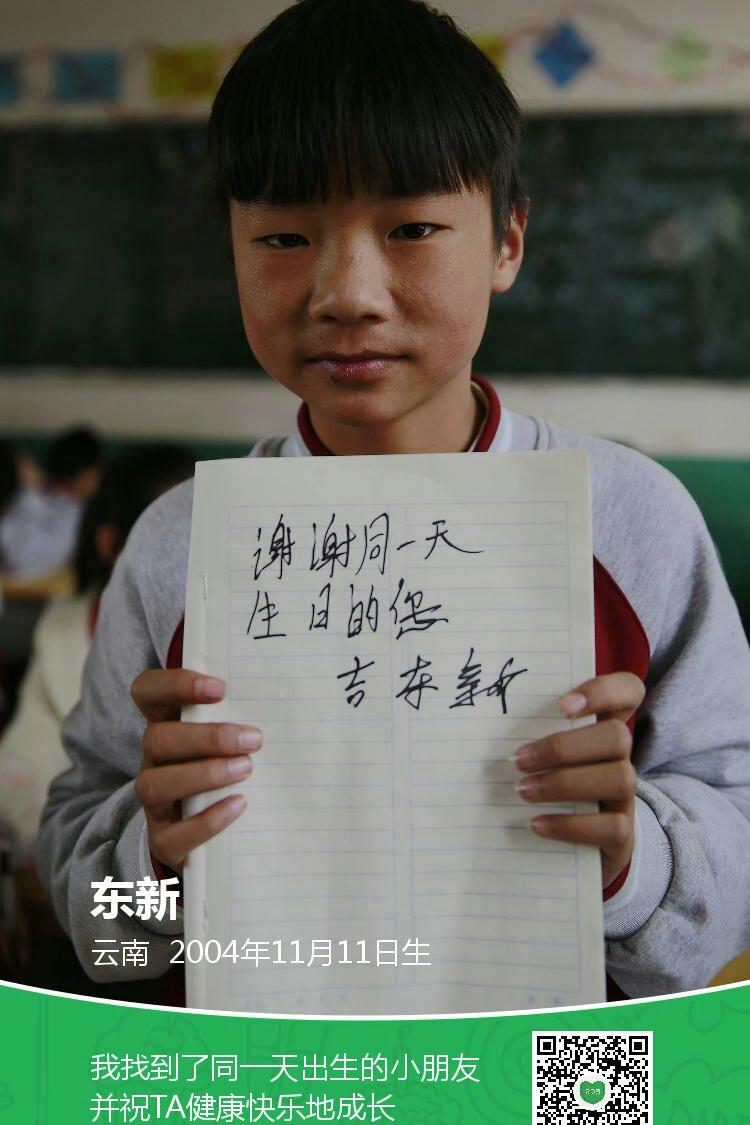 谢谢同一天
生日的您
吉东新
东新
云南 2004年11月11日生
我找到了同一天出生的小朋友
并祝TA健康快乐地成长